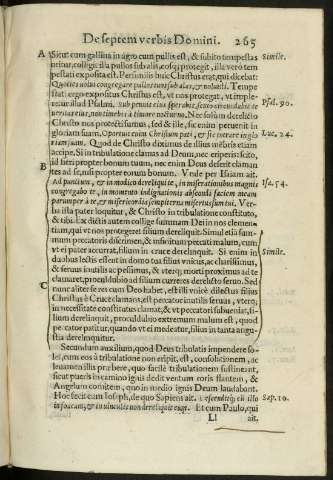 De septem verbis Domini. 265
A Sicut cum gallina in agro cum pullis est, & subito tempestas Simile.
oritur, colligit illa pullos sub alis, eosq; protegit, illa verò tem
pestati exposita est. Persimilis huic Christus erat, qui dicebat:
Quoties volui congregare pullos tuos sub alas, & noluisti. Tempe
stati ergo expositus Christus est, vt nos protegat, vt imple-
retur illud Psalmi, Sub pennis eius sperabis, scuto circundabit te Psal. 90.
veritas eius, non timebis à timore nocturno. Nec solùm derelicto
Christo nos protecti sumus, sed & ille, sic enim peruenit in
gloriam suam, Oportuit enim Christum pati, & sic intrare in glo Luc. 24.
riam suam. Quod de Christo diximus de illius mēbris etiam
accipe. Si in tribulatione clamas ad Deum, nec eripiaris, scito,
B id fieri propter bonum tuum, nec enim Deus deserit claman
tes ad se, nisi propter eorum bonum. Vnde per Isaiam ait.
Ad punctum, & in modico dereliqui te, & in miserationibus magnis Isa. 54.
congregabo te, in momento indignationis abscondi faciem meam
parumper à te, & misericordia sempiterna misertus sum tui. Ver-
ba ista pater loquitur, & Christo in tribulatione constituto,
& tibi. Ex dictis autem collige summam Dei in nos clemen-
tiam, qui vt nos protegeret filium dereliquit. Simul etiā sum-
mum precatoris discrimen, & infinitum peccati malum, cum
vt ei pater accurrat, filium in cruce derelinquit. Si enim in Simile.
duobus lectis essent in domo tua filius vnicus, ac charissimus,
& seruus inutilis ac pessimus, & vterq; morti proximus ad te
clamaret, proculdubio ad filium curreres derelicto seruo. Sed
C nunc aliter se res apud Deo habet, est illi vnicè dilectus filius
Christus è Cruce clamans, est percator inutilis seruus, vterq;
in necessitate constitutus clamat, & vt peccatori subueniat, fi-
lium derelinquit, proculdubio extremum malum est, quod
percator patitur, quando vt ei medeatur, filium in tanta angu-
stia derelinquitur.
Secundum auxilium, quod Deus tribulatis impendere so
let, cum eos à tribulatione non eripit, est, consolicionem, ac
leuamen illis præbere, quo facilè tribulationem sustineant,
sicut pueris in camino ignis dedit ventum roris flantem, &
Angelum comitem, quo in medio ignis Deum laudabant.
Hoc fecit cum Ioseph, de quo Sapiens ait. Descenditq; cū illo Sap. 10.
in foueam, & in vinculis non dereliquit eum. Et cum Paulo, qui
Ll ait.